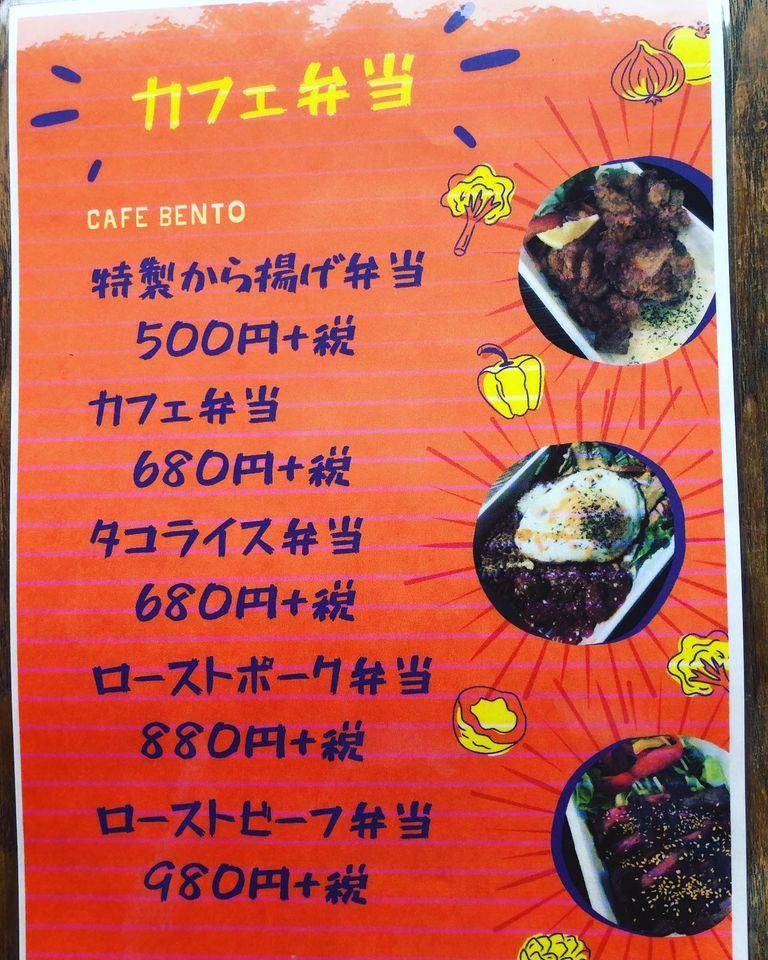 カフェ弁当
CAFE BENTO
特製から揚げ弁当
500円+税
カフェ弁当
680円+税
タコライス弁当
680円+税
ローストポーク弁当
880円+税
ローストビーフ弁当
980円+税